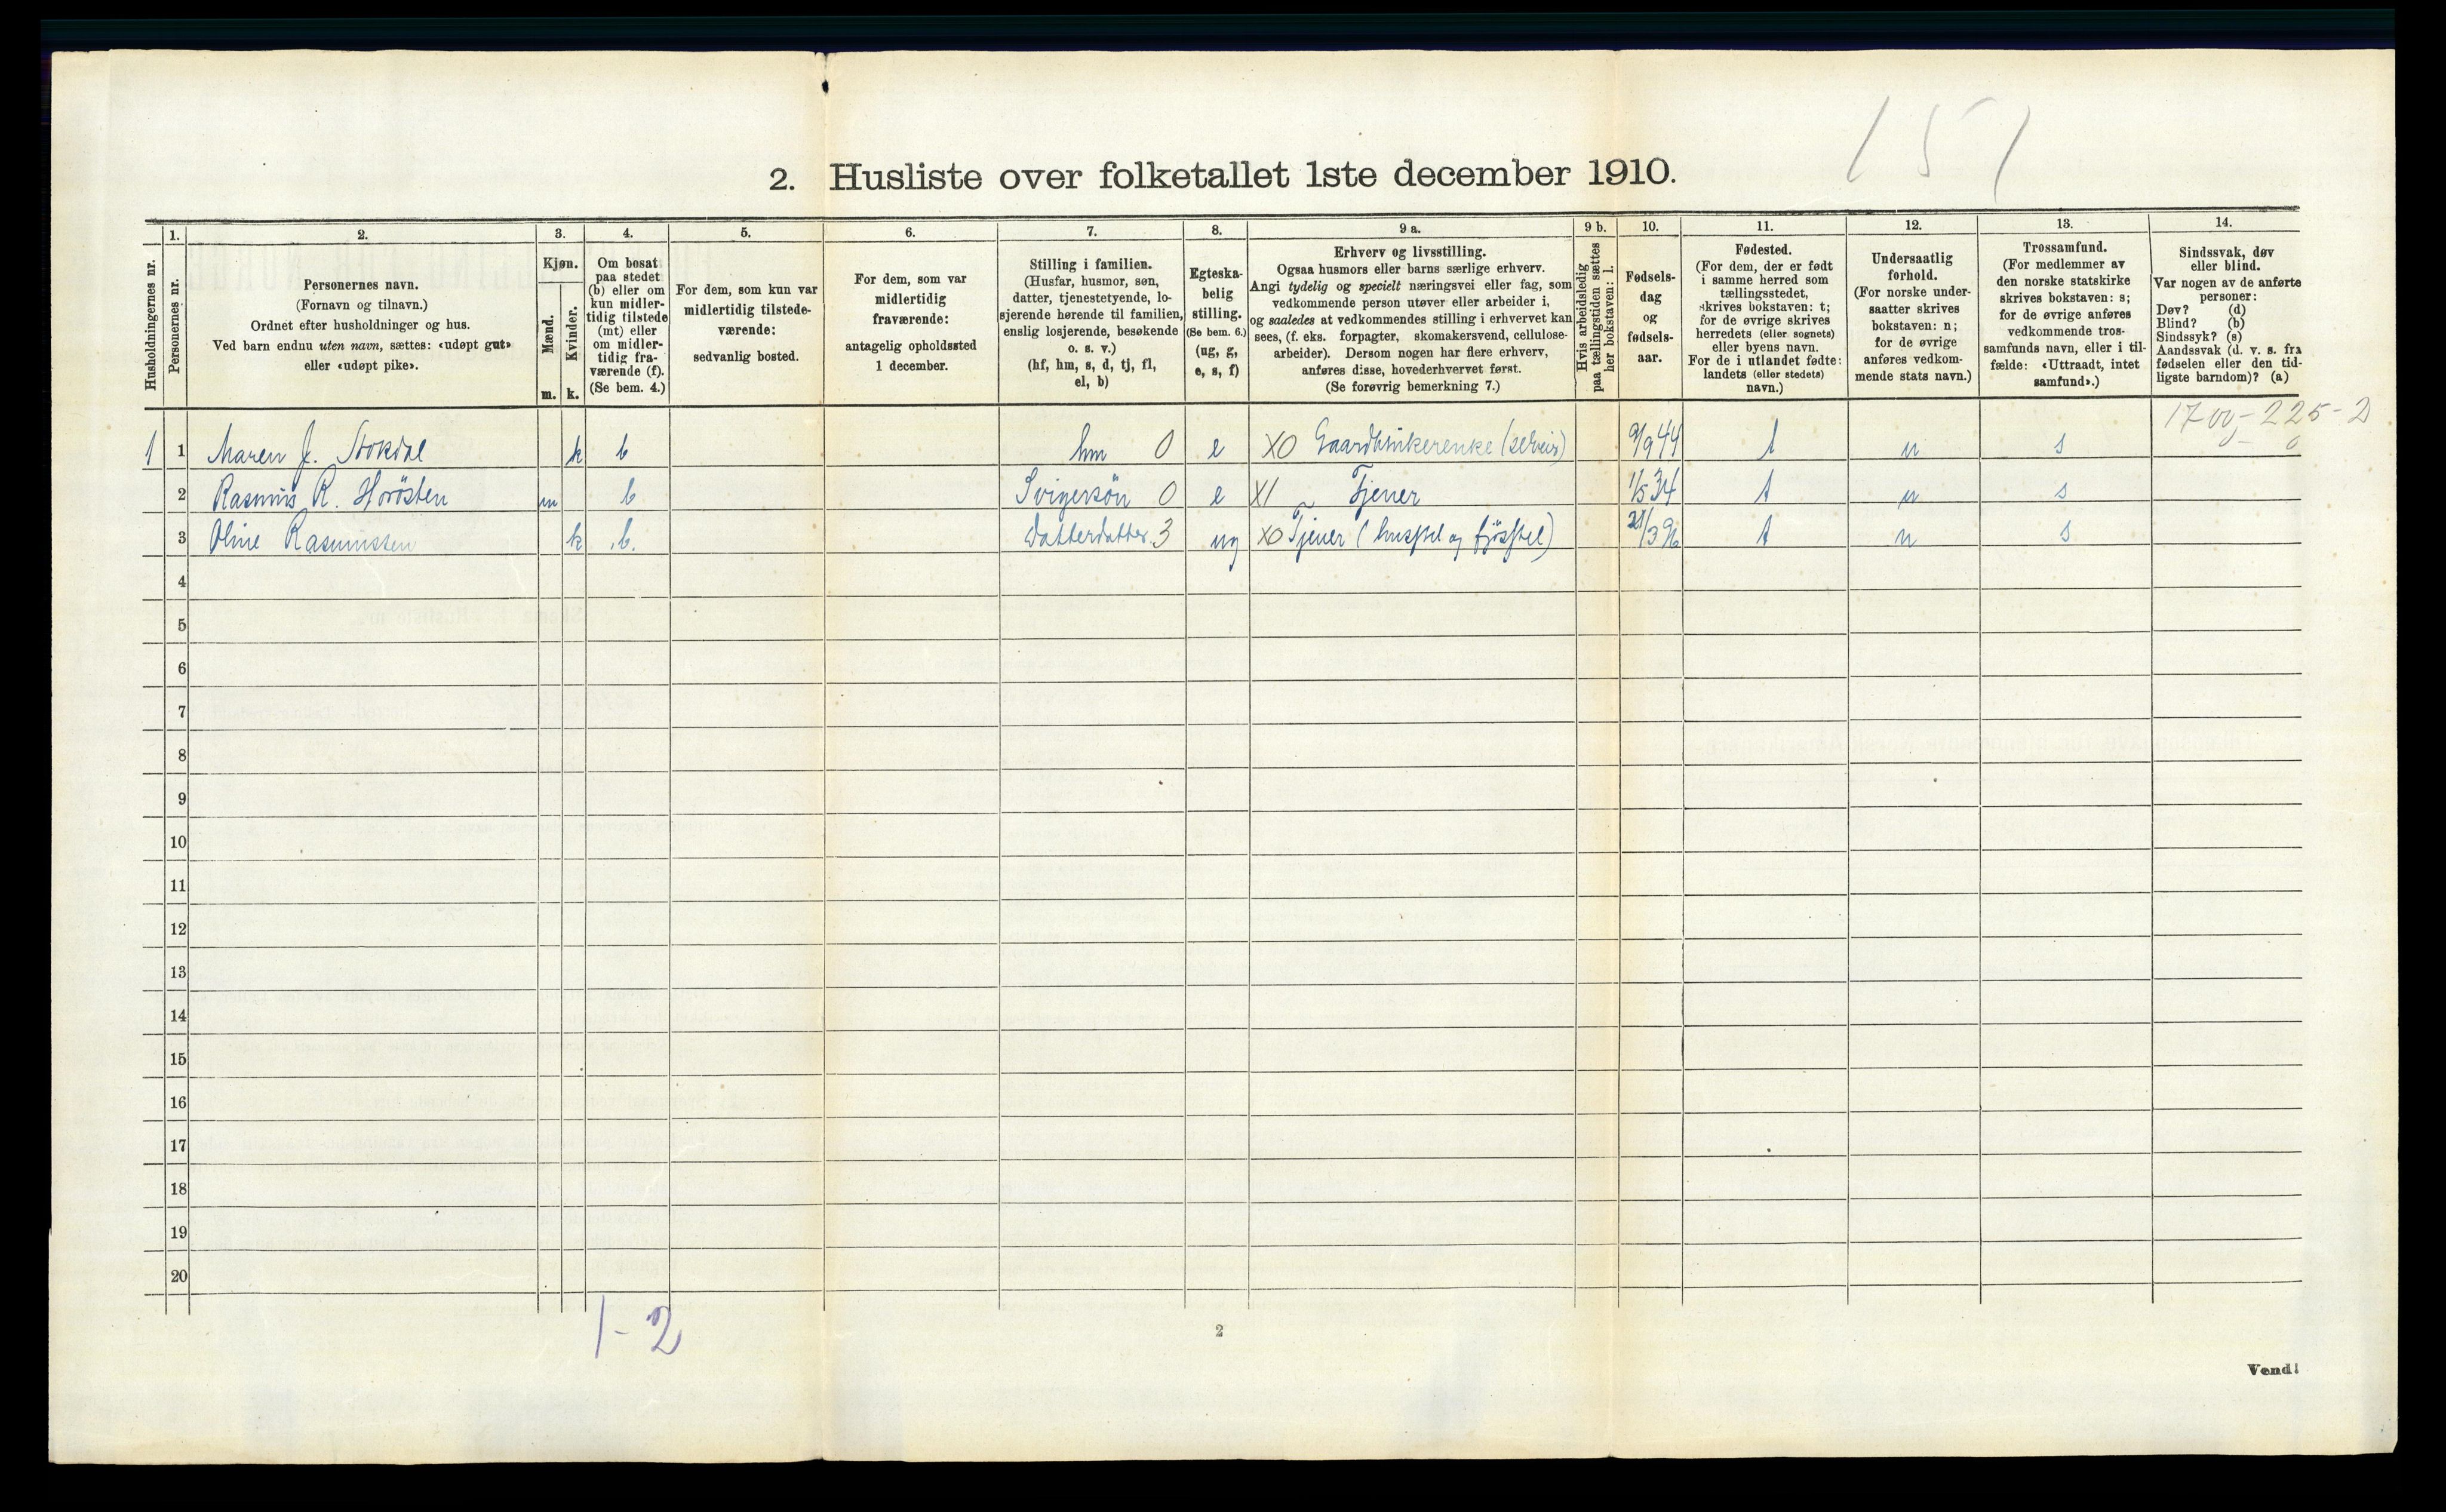 151
2. Husliste over folketallet 1ste december 1910.
Husholdningernes nr.
1.
Personernes nr.
2.
Personernes navn.
(Fornavn og tilnavn.)
Ordnet efter husholdninger og hus.
Ved barn endnu uten navn, sættes: «udøpt gut»
eller «udøpt pike».
3.
Kjøn.
Mænd.
m.
Kvinder.
k.
4.
Om bosat
paa stedet
(b) eller om
kun midler-
tidig tilstede
(mt) eller
om midler-
tidig fra-
værende (f).
(Se bem. 4.)
5.
For dem, som kun var
midlertidig tilstede-
værende:
sedvanlig bosted.
6.
For dem, som var
midlertidig
fraværende:
antagelig opholdssted
1 december.
7.
Stilling i familien.
(Husfar, husmor, søn,
datter, tjenestetyende, lo-
sjerende hørende til familien,
enslig losjerende, besøkende
o. s. v.)
(hf, hm, s, d, tj, fl,
el, b)
8.
Egteska-
belig
stilling.
(Se bem. 6.)
(ug, g,
e, s, f)
9 a.
Erhverv og livsstilling.
Ogsaa husmors eller barns særlige erhverv.
Angi tydelig og specielt næringsvei eller fag, som
vedkommende person utøver eller arbeider i,
og saaledes at vedkommendes stilling i erhvervet kan
sees, (f. eks. forpagter, skomakersvend, cellulose-
arbeider). Dersom nogen har flere erhverv,
anføres disse, hovederhvervet først.
(Se forøvrig bemerkning 7.)
9 b.
Hvis arbeidsledig
paa tællingstiden sættes
her bokstaven: l.
10.
Fødsels-
dag
og
fødsels-
aar.
11.
Fødested.
(For dem, der er født
i samme herred som
tællingsstedet,
skrives bokstaven: t;
for de øvrige skrives
herredets (eller sognets)
eller byens navn.
For de i utlandet fødte:
landets (eller stedets)
navn.)
12.
Undersaatlig
forhold.
(For norske under-
saatter skrives
bokstaven: n;
for de øvrige
anføres vedkom-
mende stats navn.)
13.
Trossamfund.
(For medlemmer av
den norske statskirke
skrives bokstaven: s;
for de øvrige anføres
vedkommende tros-
samfunds navn, eller i til-
fælde: «Uttraadt, intet
samfund».)
14.
Sindssvak, døv
eller blind.
Var nogen av de anførte
personer:
Døv? (d)
Blind? (b)
Sindssyk? (s)
Aandssvak (d. v. s. fra
fødselen eller den tid-
ligste barndom)? (a)
1 1 Maren J. Stokdal k b hm 0 e XO Gaardbrukerenke (selveier) 9/9 44 t n s
2 Rasmus R. m b Svigersön 0 e X1 Tjener 1/5 34 t n s
3 Oline Rasmussen k b. Datterdatter 3 ug XO Tjener (husstel og fjösstel) 21/3 96 t n s
4
5
6
7
8
9
10
11
12
13
14
15
16
17
18
19
20
1-2
2
Vend!